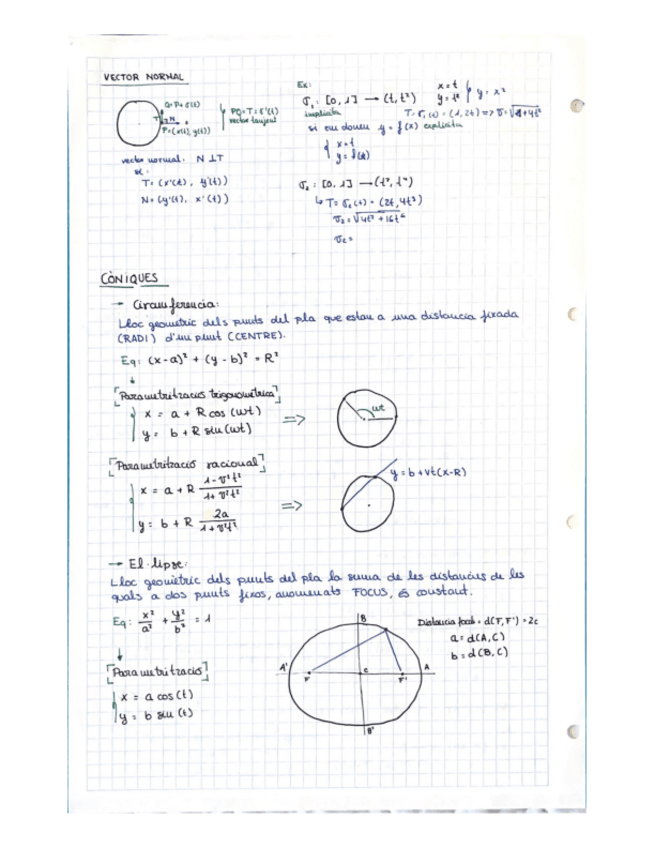 VECTOR NORMAL
Q=P+σ(t)
T N
P=(x(t), y(t))
PQ=T=σ'(t)
vector tangent
vector normal: N⊥T
T=(x'(t), y'(t))
N=(y'(t), x'(t))
Ex:
σ₁: [0, 1] → (t, t²)
x=t
y=t²
y=x²
implícita
T=σ₁(t)=(1, 2t) => σ=√1+4t²
si ens donen y=f(x) explícita
x=t
y=f(t)
σ₂: [0, 1] → (t², t⁴)
↳ T=σ₂(t)=(2t, 4t³)
σ₂=√4t²+16t⁶
σ₂=
CÒNIQUES
→ Circumferencia:
Lloc geomètric dels punts del pla que estan a una distancia fixada
(RADI) d'un punt (CENTRE).
Eq: (x-a)² + (y-b)² = R²
↓
Parametrització trigonomètrica
x = a + R cos(wt)
y = b + R sin(wt)
=>
wt
Parametrització racional
x = a + R (1-v²t²)/(1+v²t²)
y = b + R 2a/(1+v²t²)
=>
y=b+vt(x-R)
→ El·lipse:
Lloc geomètric dels punts del pla la suma de les distancies de les
quals a dos punts fixos, anomenats FOCUS, és constant.
Eq: x²/a² + y²/b² = 1
↓
Parametrització
x = a cos(t)
y = b sin(t)
B
A' F C F' A
B'
Distancia focal = d(F,F') = 2c
a = d(A,C)
b = d(B,C)